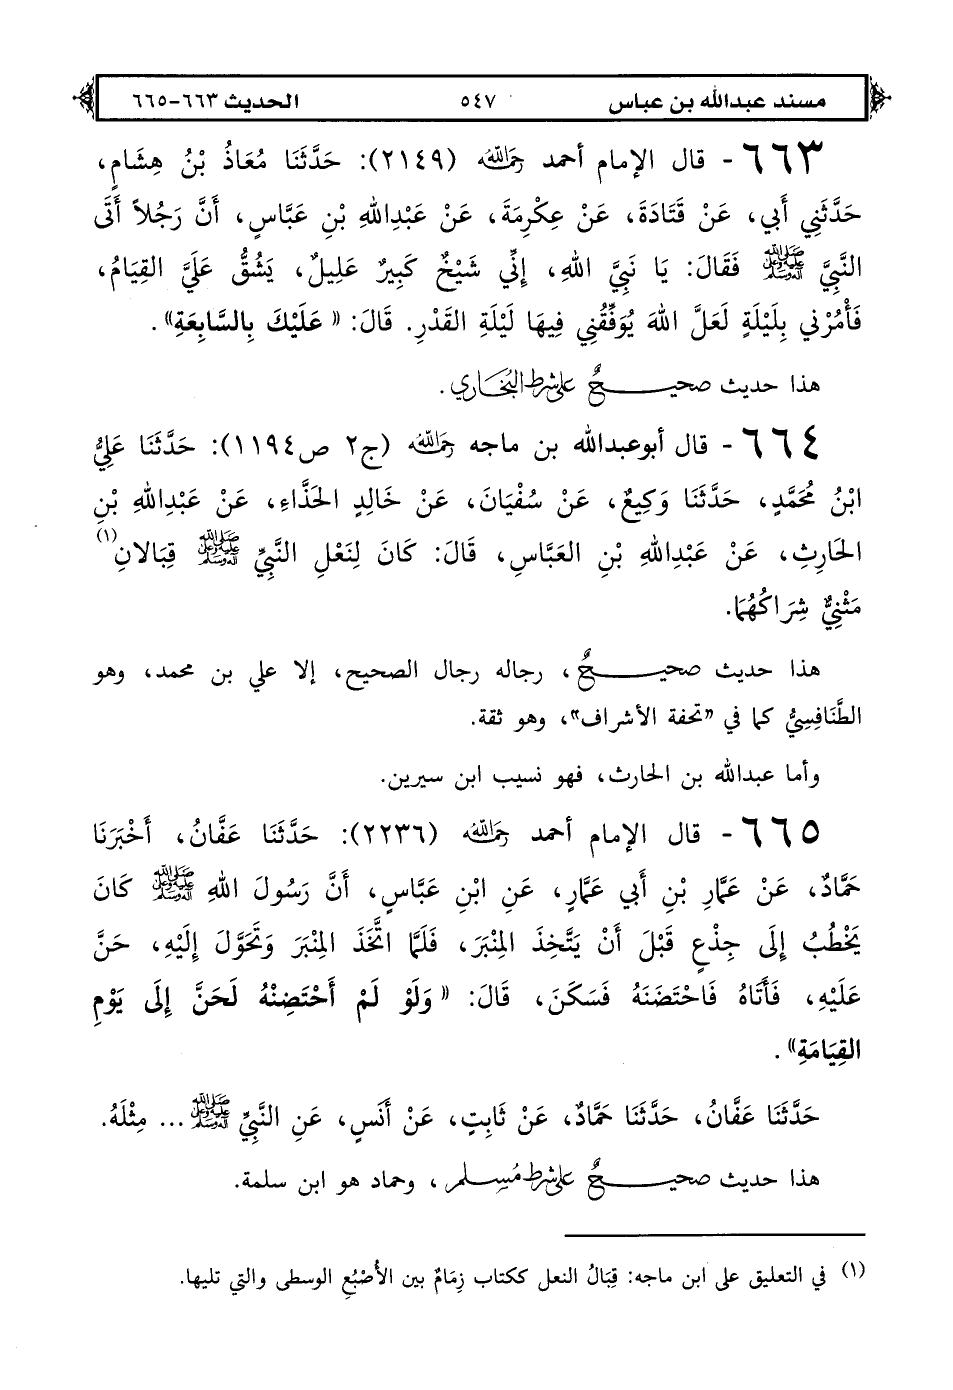 مسند عبدالله بن عباس ٥٤٧ الحديث ٦٦٣-٦٦٥
٦٦٣ - قال الإمام أحمد رحمه الله (٢١٤٩): حَدَّثَنَا مُعَاذُ بْنُ هِشَامٍ،
حَدَّثَنِي أَبي، عَنْ قَتَادَةَ، عَنْ عِكْرِمَةَ، عَنْ عَبْدِاللهِ بْنِ عَبَّاسٍ، أَنَّ رَجُلاً أَتَى
النَّبِيَّ ﷺ فَقَالَ: يَا نَبِيَّ اللهِ، إِنِّي شَيْخٌ كَبِيرٌ عَلِيلٌ، يَشُقُّ عَلَيَّ القِيَامُ،
فَأْمُرْنِي بِلَيْلَةٍ لَعَلَّ اللهَ يُوَفِّقُنِي فِيهَا لَيْلَةَ القَدْرِ. قَالَ: «عَلَيْكَ بِالسَّابِعَةِ».
هذا حديث صحيحٌ على شرط البُخَاري.
٦٦٤ - قال أبوعبدالله بن ماجه رحمه الله (ج٢ ص١١٩٤): حَدَّثَنَا عَلِيُّ
ابْنُ مُحَمَّدٍ، حَدَّثَنَا وَكِيعٌ، عَنْ سُفْيَانَ، عَنْ خَالِدٍ الحَذَّاءِ، عَنْ عَبْدِاللهِ بْنِ
الحَارِثِ، عَنْ عَبْدِاللهِ بْنِ العَبَّاسِ، قَالَ: كَانَ لِنَعْلِ النَّبِيِّ ﷺ قِبَالانِ(١)
مَثْنِيٌّ شِرَاكُهُمَا.
هذا حديث صحيحٌ، رجاله رجال الصحيح، إلا علي بن محمد، وهو
الطَّنَافِسِيُّ كما في «تحفة الأشراف»، وهو ثقة.
وأما عبدالله بن الحارث، فهو نسيب ابن سيرين.
٦٦٥ - قال الإمام أحمد رحمه الله (٢٢٣٦): حَدَّثَنَا عَفَّانُ، أَخْبَرَنَا
حَمَّادٌ، عَنْ عَمَّارِ بْنِ أَبي عَمَّارٍ، عَنِ ابْنِ عَبَّاسٍ، أَنَّ رَسُولَ اللهِ ﷺ كَانَ
يَخْطُبُ إِلَى جِذْعٍ قَبْلَ أَنْ يَتَّخِذَ المِنْبَرَ، فَلَمَّا اتَّخَذَ المِنْبَرَ وَتَحَوَّلَ إِلَيْهِ، حَنَّ
عَلَيْهِ، فَأَتَاهُ فَاحْتَضَنَهُ فَسَكَنَ، قَالَ: «وَلَوْ لَمْ أَحْتَضِنْهُ لَحَنَّ إِلَى يَوْمِ
القِيَامَةِ».
حَدَّثَنَا عَفَّانُ، حَدَّثَنَا حَمَّادٌ، عَنْ ثَابِتٍ، عَنْ أَنَسٍ، عَنِ النَّبِيِّ ﷺ... مِثْلَهُ.
هذا حديث صحيحٌ على شرط مُسلم، وحماد هو ابن سلمة.
(١) في التعليق على ابن ماجه: قِبَالُ النعل ككتاب زِمَامٌ بين الأُصْبُعِ الوسطى والتي تليها.